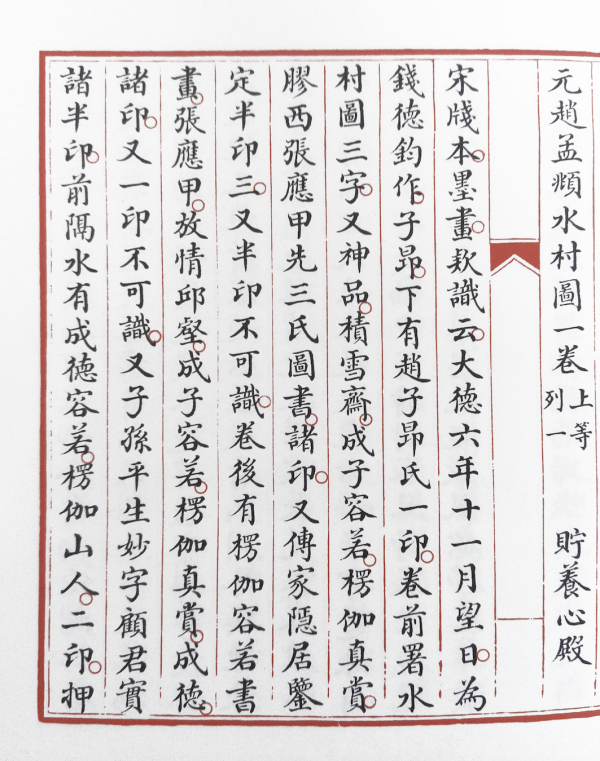 元趙孟頫水村圖一卷 上等
列一 貯養心殿
宋牋本。墨畫。欵識云。大德六年十一月望日。為
錢德鈞作。子昂。下有趙子昂氏一印。卷前署水
村圖三字。又神品。積雪齋。成子容若。楞伽真賞。
膠西張應甲先三氏圖書。諸印。又傳家隱居鑒
定半印三。又半印不可識。卷後有楞伽容若書
畫。張應甲。放情邱壑。成子容若。楞伽真賞。成德。
諸印。又一印不可識。又子孫平生妙字顧君實
諸半印。前隔水有成德容若。楞伽山人。二印。押